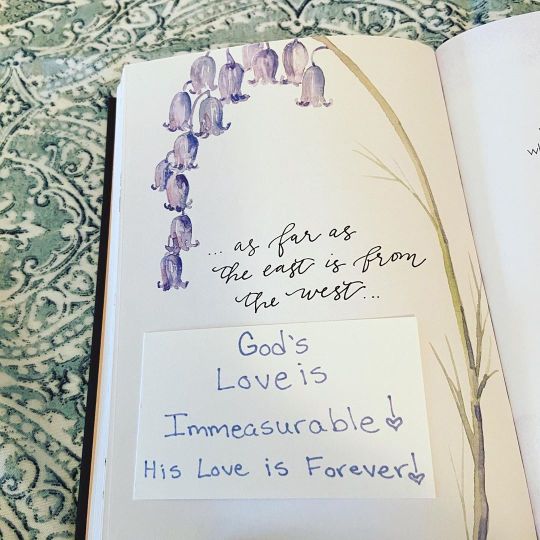 ... as far as
the east is from
the west...
God's
Love is
Immeasurable!
His Love is Forever!